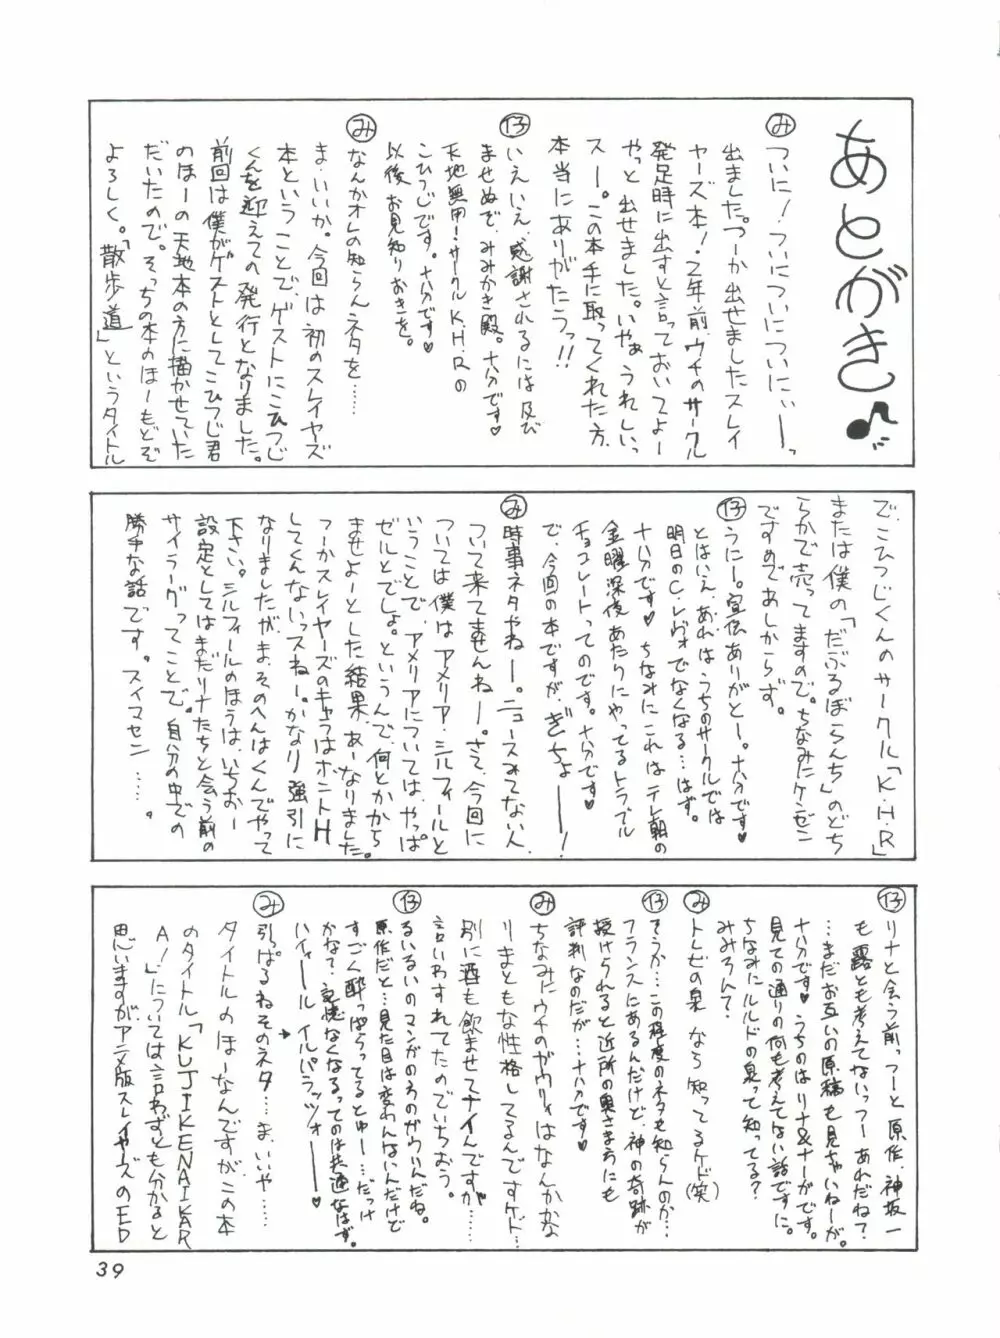 あとがき♪
み ついに！ついについについにぃぃーーっ
出ました。つーか出せましたスレイ
ヤーズ本！２年前、ウチのサークル
発足時に出すと言っておいてよー
やっと出せました。いやぁうれしいっ
スー。この本手に取ってくれた方、
本当にありがたうっ!!
仔 いえいえ、感謝されるには及び
ませぬで、みみかき殿。十分です♥
こひつじです。十分です♥
天地無用！サークルK.H.Rの
以後お見知りおきを。
み なんかオレの知らんネタを……
ま、いいか。今回は初のスレイヤーズ
本ということで、ゲストにこひつじ
くんを迎えての発行となりました。
前回は僕がゲストとしてこひつじ君
のほーの天地本の方に描かせていた
だいたので。そっちの本のほーもどぞ
よろしく。「散歩道」というタイトル
で、こひつじくんのサークル「K.H.R」
または僕の「だぶるぼらんち」のどち
らかで売ってますので。ちなみにケンゼン
ですのであしからず。
仔 うにー。宣伝ありがとー。十分です♥
とはいえ、あれは、うちのサークルでは
明日のC.レヴォでなくなる…はず。
十分です♥ ちなみにこれはテレ朝の
金曜深夜あたりにやってるトラブル
チョコレートってのです。十分です♥
で、今回の本ですが、ぎちょーーー！
み 時事ネタやねー。ニュースみてない人、
ついて来てませんねー。さて、今回に
ついては僕はアメリア、シルフィールと
いうことで、アメリアについては、やっぱ
ゼルとでしょ。というんで、何とかから
ませよーとした結果、あーなりました。
つーかスレイヤーズのキャラはホントH
してくんないっスねー。かなり強引に
なりましたが、ま、そのへんはくんでやって
下さい。シルフィールのほうは、いちおー
設定としてはまだリナたちと会う前の
サイラーグってことで。自分の中での
勝手な話です。スイマセン……。
仔 リナと会う前っつーと原作、神坂一
も露とも考えてないっつーあれだね？
…まだお互いの原稿も見ちゃいねーが。
十分です♥うちのはリナ＆ナーガです。
見ての通りの何も考えてない話ですに。
ちなみにルルドの泉って知ってる？
みみろんて？
み トレビの泉なら知ってるケド（笑）
仔 そうか…この程度のネタも知らんのか…
フランスにあるんだけど、神の奇跡が
授けられると近所の奥さま方にも
評判なのだが…十分です♥
み ちなみにウチのガウリィはなんかかな
りまともな性格してるんですケド…
別に酒も飲ませてナイんですが……
言いわすれてたのでいちおう。
仔 るいるいのマンガのほうのガウリんだね。
原作だと…見た目は変わんないんだけど
すごく酔っぱらってるとゅー…だっけ
かなて、記憶なくなるってのは共通なはず。
ハイィール イルパラッツォーーー♥
み 引っぱるねそのネタ……ま、いいや……
タイトルのほーなんですが、この本
のタイトル「KUJIKENAIKAR
A！」については言わずとも分かると
思いますがアニメ版スレイヤーズのED
39